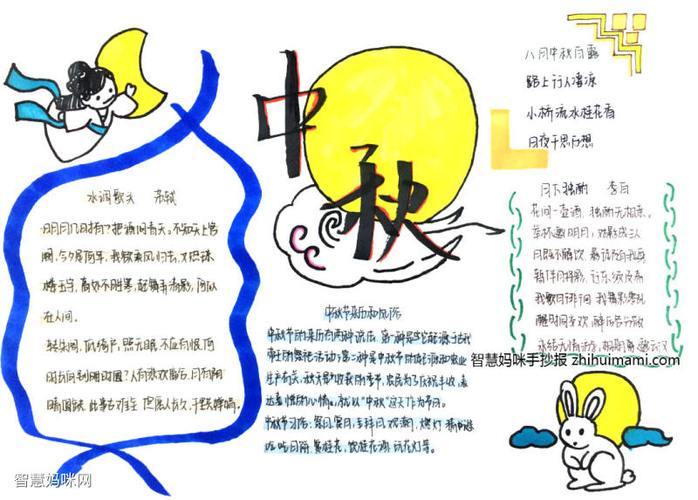 水调歌头 苏轼
明月几时有？把酒问青天。不知天上宫
阙，今夕何年。我欲乘风归去，又恐琼
楼玉宇，高处不胜寒，起舞弄清影，何似
在人间。
转朱阁，低绮户，照无眠。不应有恨，何
事长向别时圆？人有悲欢离合，月有阴
晴圆缺，此事古难全。但愿人长久，千里共婵娟。
智慧妈咪网
中秋
中秋节来历和风俗
中秋节的来历有两种说法，第一种是它起源于古代
帝王的祭祀活动；第二种是中秋节的起源和农业
生产有关，秋天是收获的季节，农民为了庆祝丰收，表
达喜悦的心情。就以“中秋”这天作为节日。
中秋节习俗：赏月、
吃月饼、赏桂花、饮桂花酒、玩花灯等。
八月中秋白露
路上行人凄凉
小桥流水桂花香
日夜千思万想
月下独酌 李白
花间一壶酒，独酌无相亲。
举杯邀明月，对影成三人
月既不解饮，影徒随我身
暂伴月将影，行乐须及春
我歌月徘徊，我舞影零乱
醒时同交欢，醉后各分散
永结无情游，相期邈云汉
智慧妈咪手抄报 zhihuimami.com